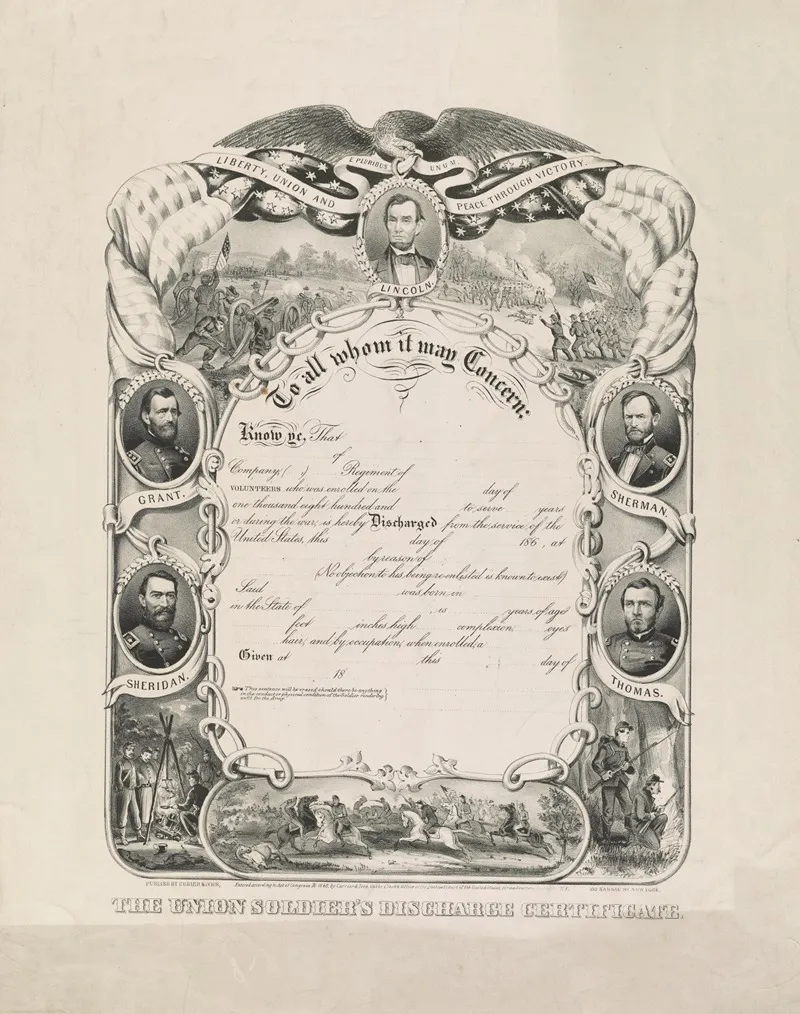 LIBERTY, UNION AND
E PLURIBUS UNUM.
PEACE THROUGH VICTORY.
LINCOLN.
To all whom it may Concern:
GRANT.
SHERMAN.
SHERIDAN.
THOMAS.
Know ye, That
of
Company, ( ) Regiment of
VOLUNTEERS who was enrolled on the day of
one thousand eight hundred and to serve years
or during the war, is hereby Discharged from the service of the
United States, this day of 186 , at
by reason of
(No objection to his being re-enlisted is known to exist)
Said was born in
in the State of is years of age
feet inches high complexion, eyes
hair, and by occupation, when enrolled, a
Given at this day of
18
This sentence will be erased should there be anything
in the conduct or physical condition of the Soldier rendering
unfit for the Army.
PUBLISHED BY CURRIER & IVES, Entered according to Act of Congress, by Currier & Ives, in the Clerk's Office of the District Court of the United States, 152 NASSAU ST. NEW YORK.
THE UNION SOLDIER'S DISCHARGE CERTIFICATE.